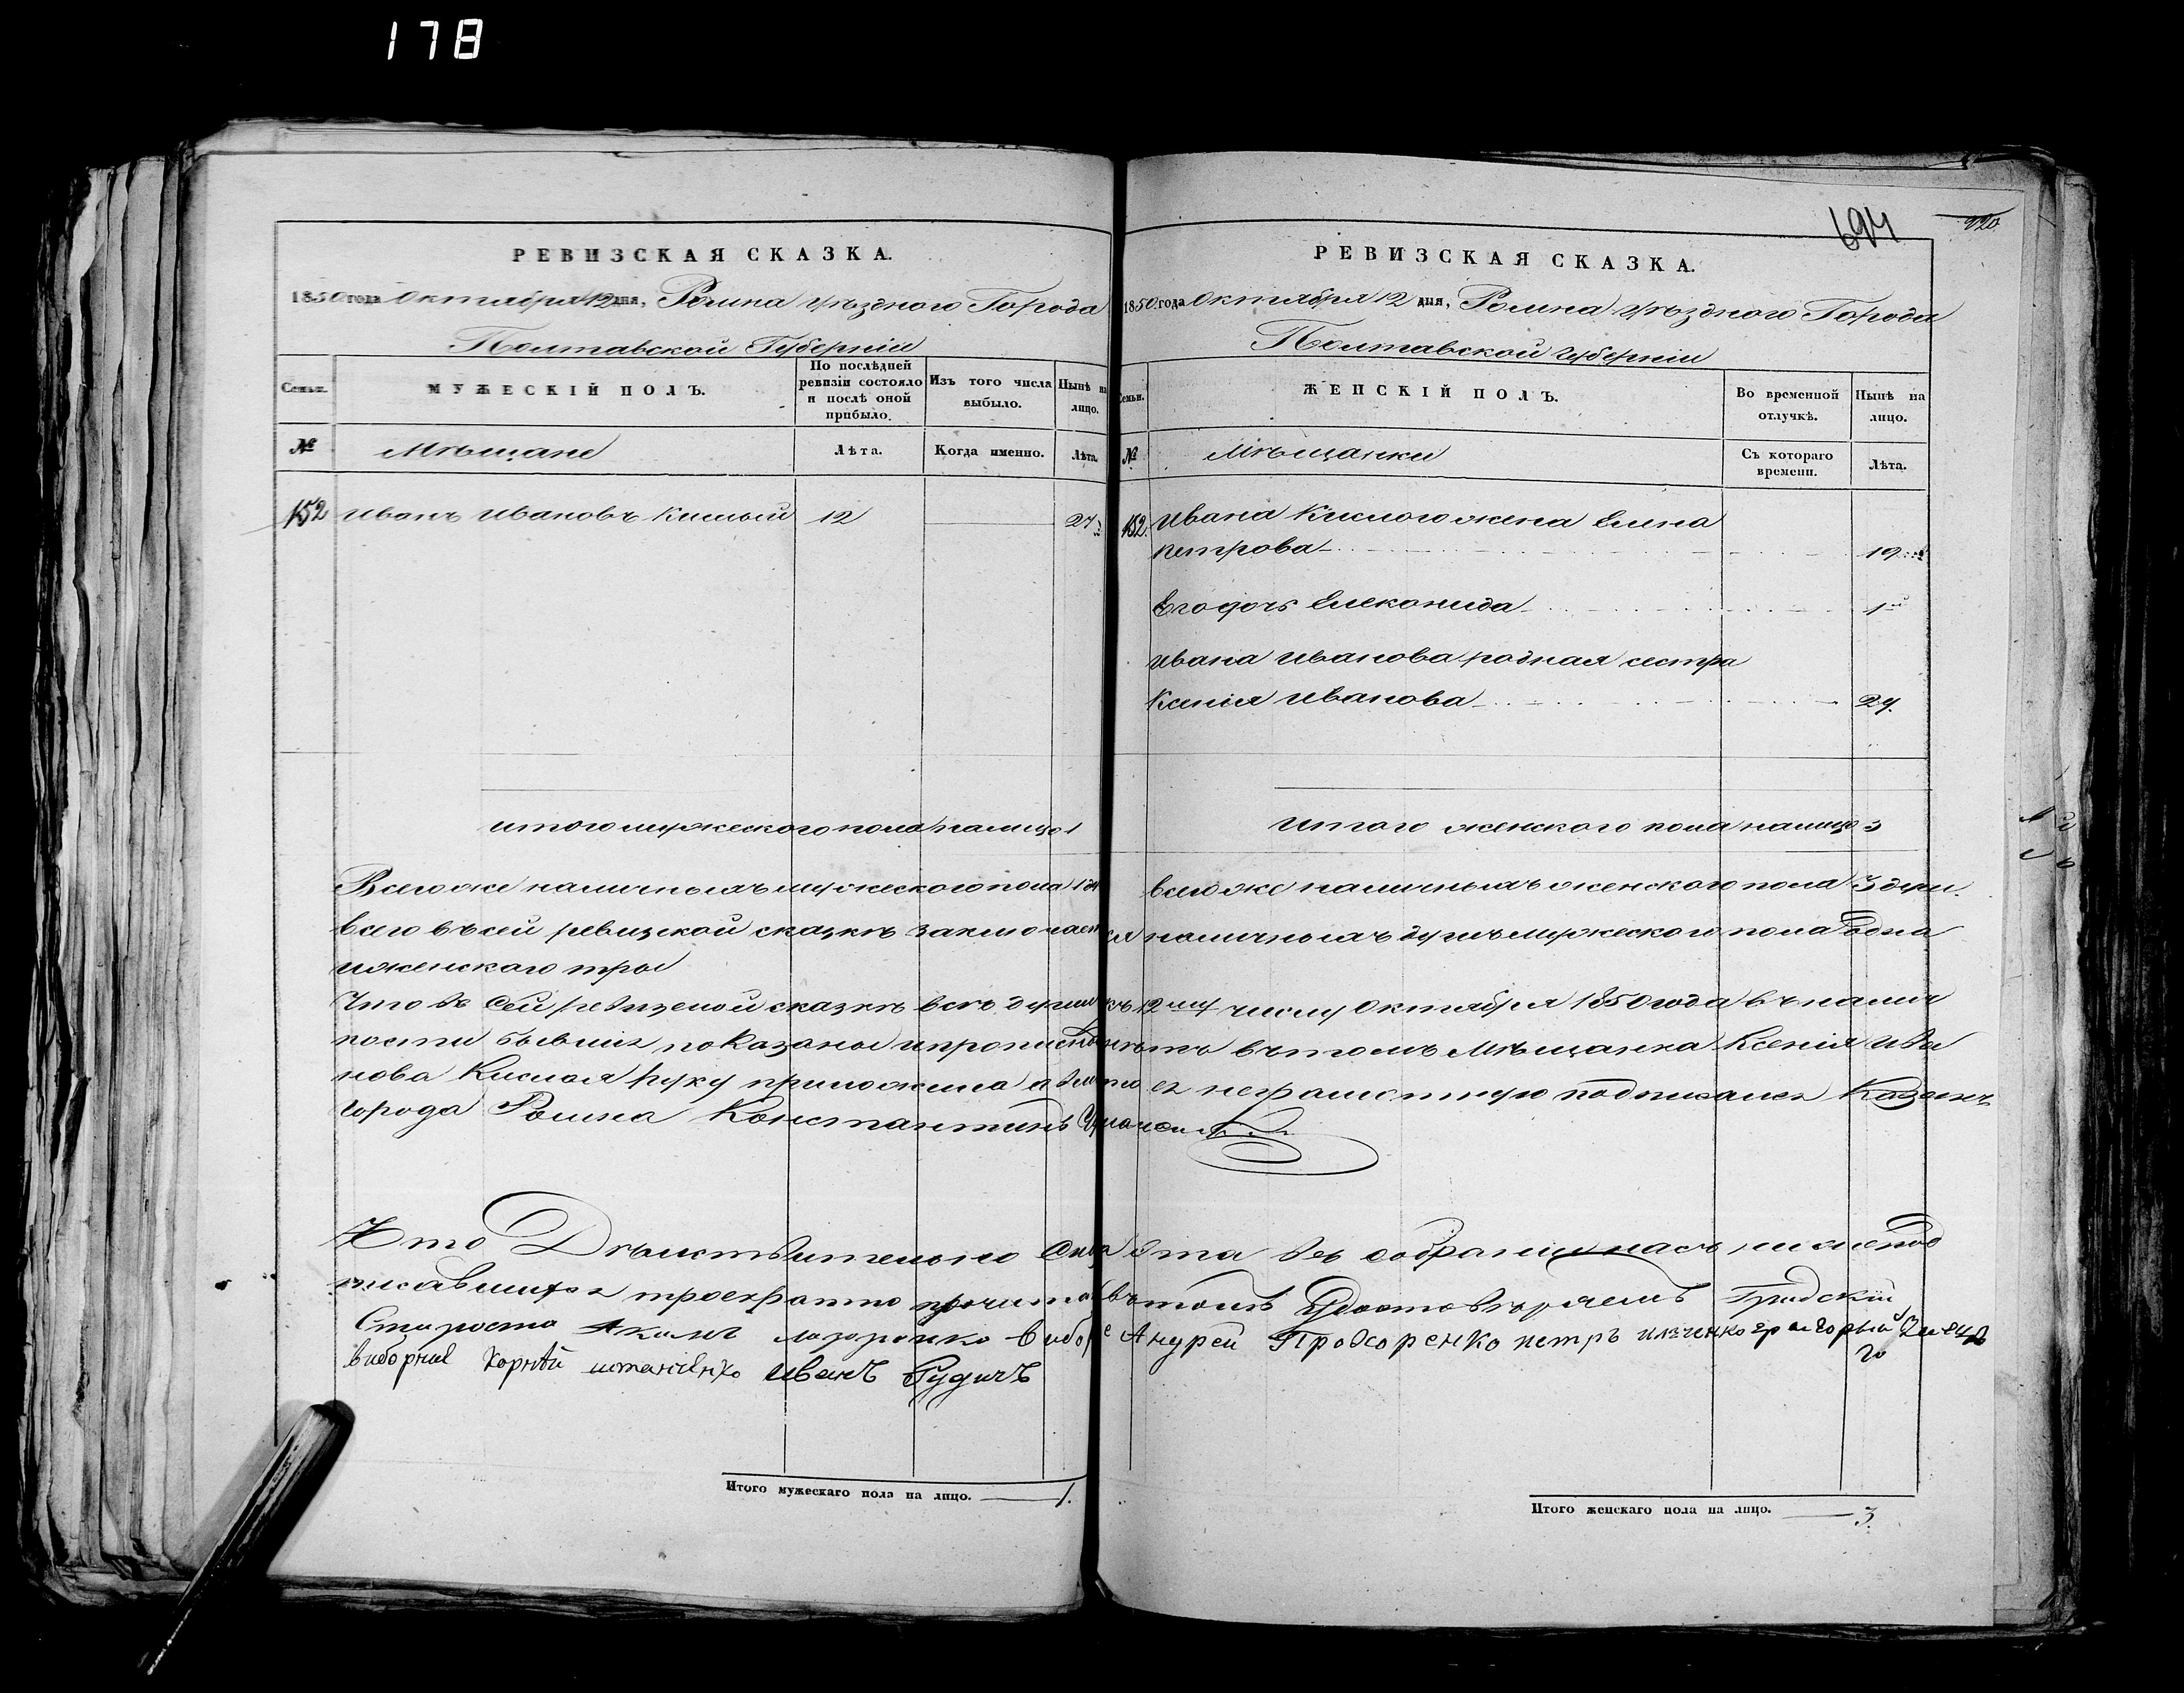 178
694
920
РЕВИЗСКАЯ СКАЗКА.
1850 года Октября 12 дня, Ромна Уѣзднаго Города
Полтавской Губерніи
Семьи.
МУЖЕСКІЙ ПОЛЪ.
По послѣдней ревизіи состояло и послѣ оной прибыло.
Изъ того числа выбыло.
Нынѣ на лицо.
№
Мѣщане
Лѣта.
Когда именно.
Лѣта.
152 Иванъ Ивановъ Кислый 12
итого мужеского пола налицо 1
Всего же наличныхъ мужеского пола 1
РЕВИЗСКАЯ СКАЗКА.
1850 года Октября 12 дня, Ромна Уѣзднаго Города
Полтавской Губерніи
Семьи.
ЖЕНСКІЙ ПОЛЪ.
Во временной отлучкѣ.
Нынѣ на лицо.
№
Мѣщанки
Съ котораго времени.
Лѣта.
152. Ивана Кислого жена Елена
Петрова 19
Его дочь 1
Ивана Иванова родная сестра
Ксенія Иванова 29.
Итого женского пола налицо 3
всего же наличныхъ женского пола 3 души.
всего въ сей ревизской сказкѣ заключается наличныхъ душъ мужеского пола одна
и женского три
Что въ сей ревизской сказкѣ всѣ души къ 12му числу Октября 1850 года въ налич
ности бывшіе показаны и прописныхъ нѣтъ въ томъ Мѣщанка Ксенія Ива
нова Кислая руку приложила а вмѣсто ея неграмотную подписался Козакъ
города Ромна Константинъ
Что Действительно сказка эта въ собраніи насъ нижепод
писавшихся троекратно прочитана въ томъ Удостовѣряемъ Градскій
Староста Выборные Андрей Петръ
виборний Корнѣй Иванъ Рудичъ
Итого мужескаго пола на лицо. 1.
Итого женскаго пола на лицо. 3.